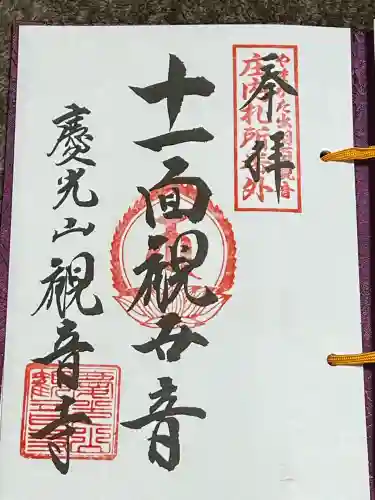 奉拝
やまがた出羽百観音
庄内札所外
十一面観世音
慶光山観音寺